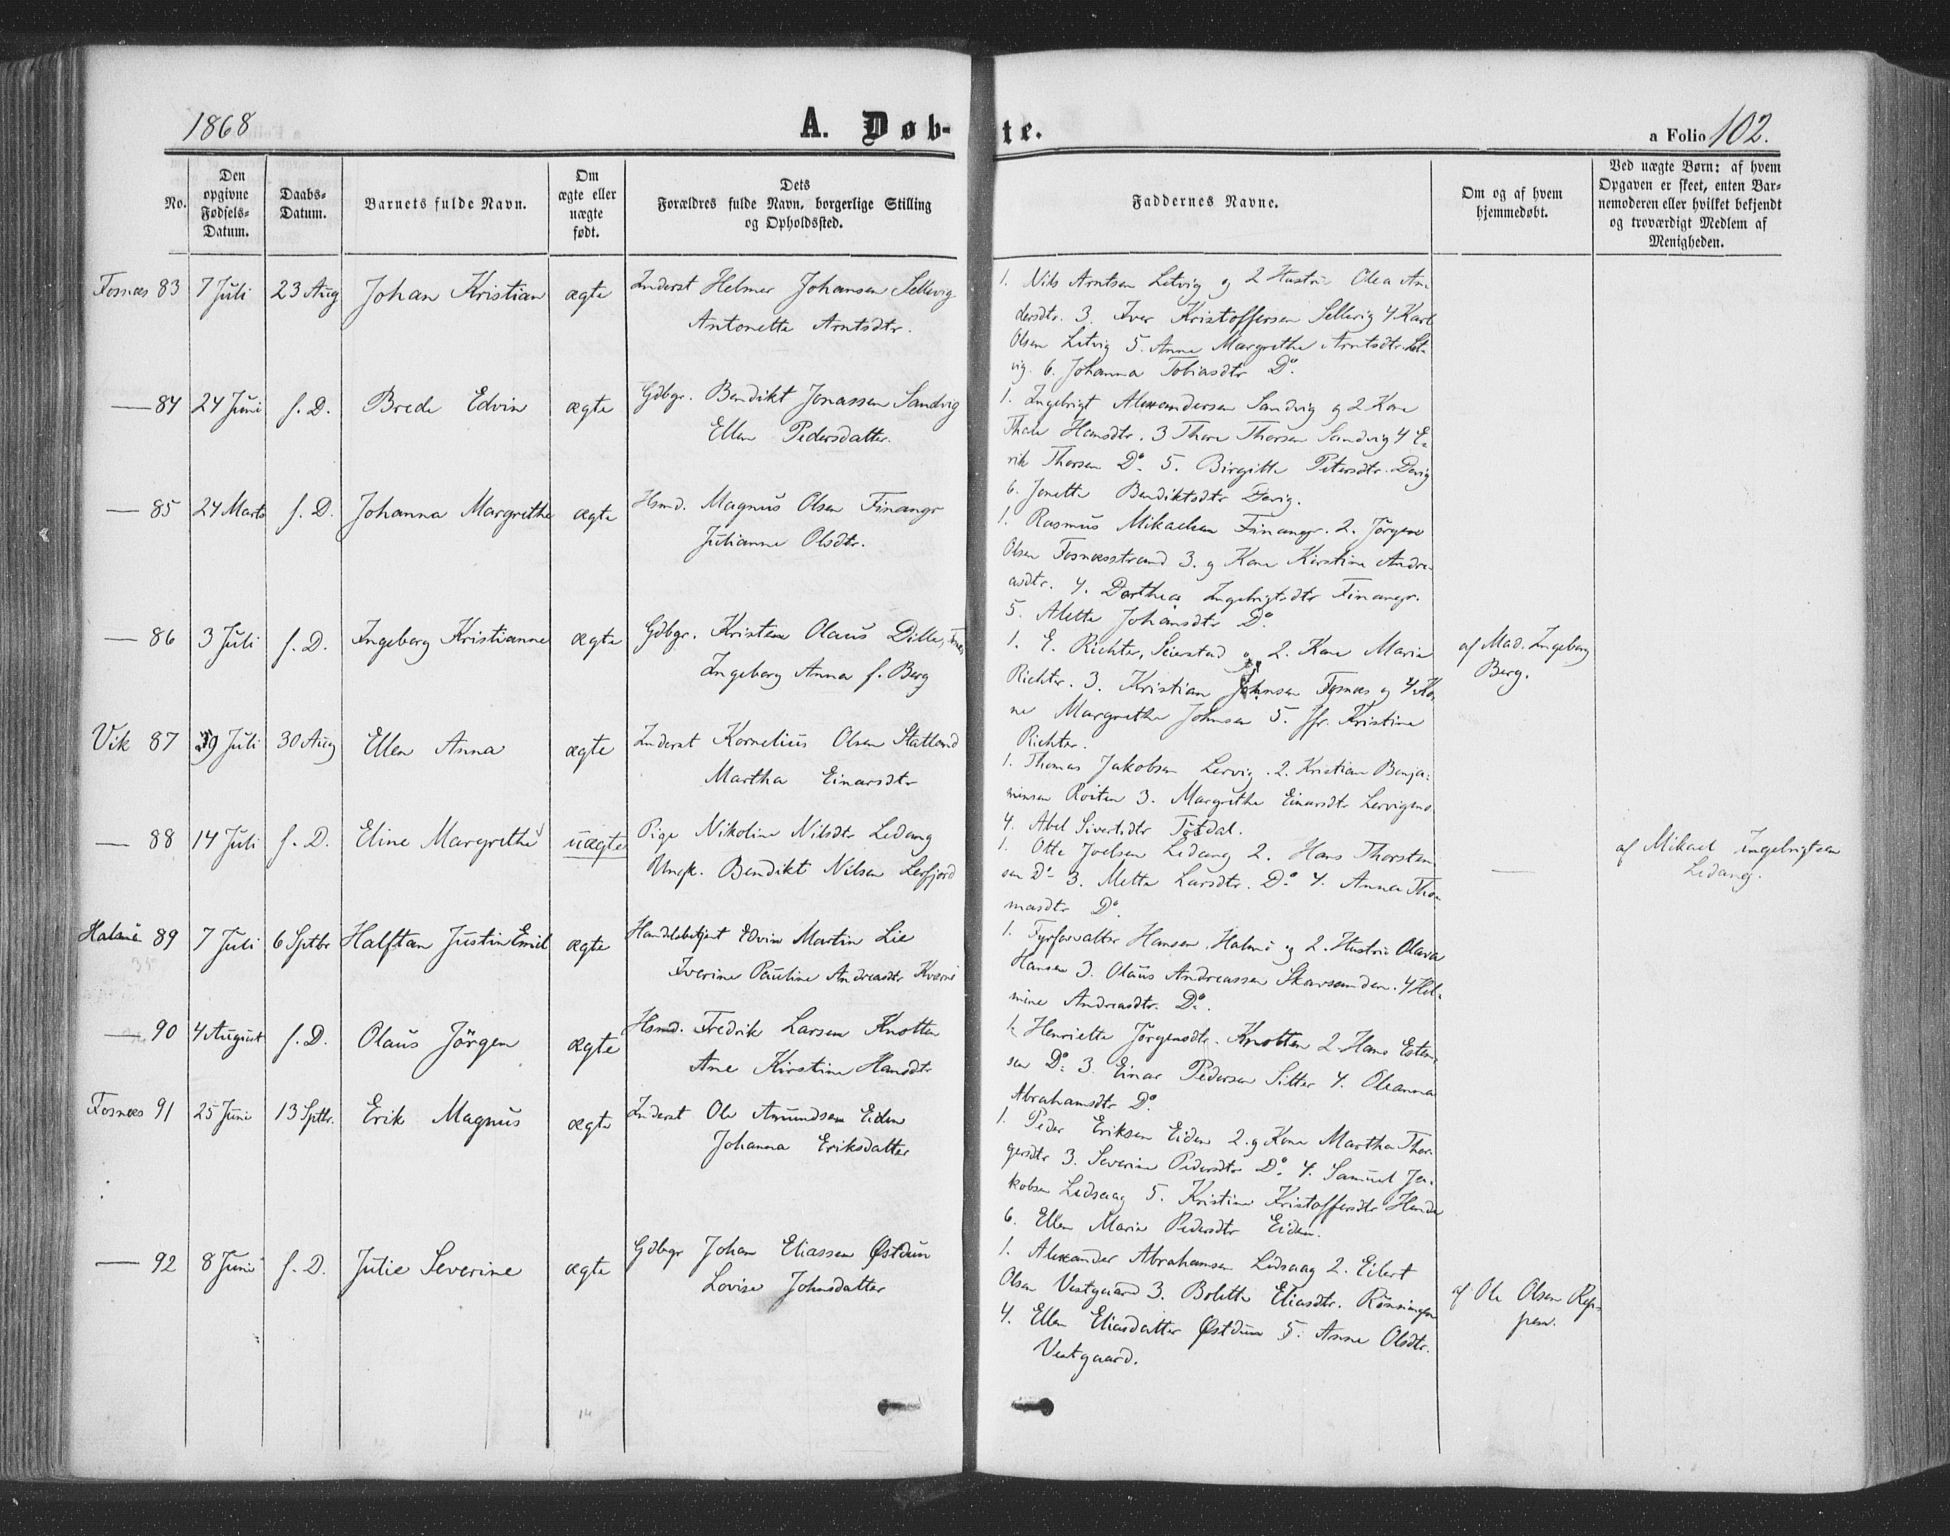 1868
A. Døb-
te.
a Folio 102.
No.
Den opgivne Fødsels-Datum.
Daabs-Datum.
Barnets fulde Navn.
Om ægte eller uægte født.
Dets Forældres fulde Navn, borgerlige Stilling og Opholdssted.
Faddernes Navne.
Om og af hvem hjemmedøbt.
Ved uægte Børn: af hvem Opgaven er skeet, enten Barnemoderen eller hvilket bekjendt og troværdigt Medlem af Menigheden.
Fosnæs 83 7 Juli 23 Aug Johan Kristian ægte Inderst Helmer Johansen Sellevig
Antonette Arntsdtr.
1. Nils Arntsen Letvig og 2 Hustru Olea An-
dersdtr. 3. Iver Kristoffersen Sellevig 4 Karl
Olsen Letvig 5. Anne Margrethe Arntsdtr. Let-
vig. 6. Johanna Tobiasdtr Do.
— 84 24 Juni s. D. Brede Edvin ægte Gdbgr. Bendikt Jonassen Sandvig
Ellen Pedersdatter.
1. Ingebrigt Alexandersen Sandvig og 2 Kone
Thale Hansdtr. 3 Thore Thorsen Sandvig 4 E-
rik Thorsen Do. 5. Birgitte Petersdtr. Davig
6. Jonetta Bendiktsdtr Davig.
— 85 24 Marts s. D. Johanna Margrethe ægte Hsmd. Magnus Olsen Finangr
Julianne Olsdtr.
1. Rasmus Mikaelsen Finangr. 2. Jørgen
Olsen Fosnæsstrand 3. og Kone Kirstine Andre-
asdtr. 4. Dorthea Ingebrigtsdtr Finangr.
5. Alette Johansdtr Do.
— 86 3 Juli s. D. Ingeborg Kristianne ægte Gdbgr. Kristen Olaus Dille,
Ingeborg Anna f. Berg
1. E. Richter, Seierstad og 2. Kone Maria
Richter. 3. Kristian Johnsen Fosnæs og 4 Ko-
ne Margrethe Johnsen 5. Jfr. Kristine
Richter.
af Mad. Ingeborg
Berg.
Vik 87 19 Juli 30 Aug Ellen Anna ægte Inderst Kornelius Olsen Statland
Martha Einarsdtr
1. Thomas Jakobsen Lervig. 2. Kristian Benja-
minsen Roiten 3. Margrethe Einarsdtr Lervigens
4. Abel Sivertsdtr Totdal.
— 88 14 Juli s. D. Eline Margrethe uægte Pige Nikoline Nilsdtr Ledang
Ungk. Bendikt Nilsen Lerfjord
1. Otte Joelsen Ledang 2. Hans Thorsten-
sen Do 3. Metta Larsdtr. Do. 4. Anna Tho-
masdtr Do.
—
af Mikael Ingebrigtsen
Ledang.
Halmø 89 7 Juli 6 Sptbr Halftan Justin Emil ægte Handelsbetjent Edvin Martin Lie
Iverine Pauline Andreasdtr Kværnø
1. Fyrforvalter Hansen, Halmø og 2. Hustru Olava
Hansen 3. Olaus Andreassen Skarsanden. 4 Hel-
mine Andreasdtr. Do.
— 90 4 August s. D. Olaus Jørgen ægte Hsmd. Fredrik Larsen Knotten
Ane Kirstine Hansdtr
1. Henriette Jørgensdtr. Knotten 2. Hans Esten-
sen Do. 3. Einar Pedersen Sitter 4. Oleanna
Abrahamsdtr Do.
Fosnæs 91 25 Juni 13 Sptbr. Erik Magnus ægte Inderst Ole Amundsen Eiden
Johanna Eriksdatter
1. Peder Eriksen Eiden 2. og Kone Martha Thor-
gersdtr 3. Severine Pedersdtr Do. 4. Samuel Ja-
kobsen Ledsaag 5. Kristine Kristoffersdtr Hende
6. Ellen Marie Pedersdtr Eiden.
— 92 8 Juni s. D. Julie Severine ægte Gdbgr Johan Eliassen Østduun
Lovise Johnsdatter
1. Alexander Abrahamsen Ledsaag 2. Eilert
Olsen Vestgaard 3. Bolette Eliasdtr. Rønningen
4. Ellen Eliasdatter Østduun 5. Anne Olsdtr.
Vestgaard.
af Ole Olsen Rep-
pen.